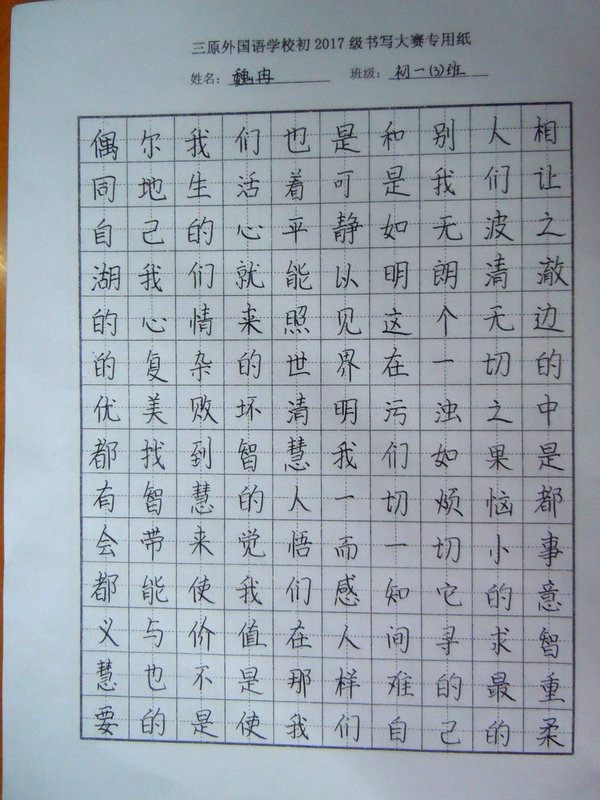 三原外国语学校初2017级书写大赛专用纸
姓名：魏冉 班级：初一(3)班
偶尔我们也是和别人相
同地生活着可是我们让
自己的心平静如无波之
湖我们就能以明朗清澈
的心情来照见这个无边
的复杂的世界在一切的
优美败坏清明污浊之中
都找到智慧我们如果是
有智慧的人一切烦恼都
会带来觉悟而一切小事
都能使我们感知它的意
义与价值在人间寻求智
慧也不是那样难的最重
要的是使我们自己的柔